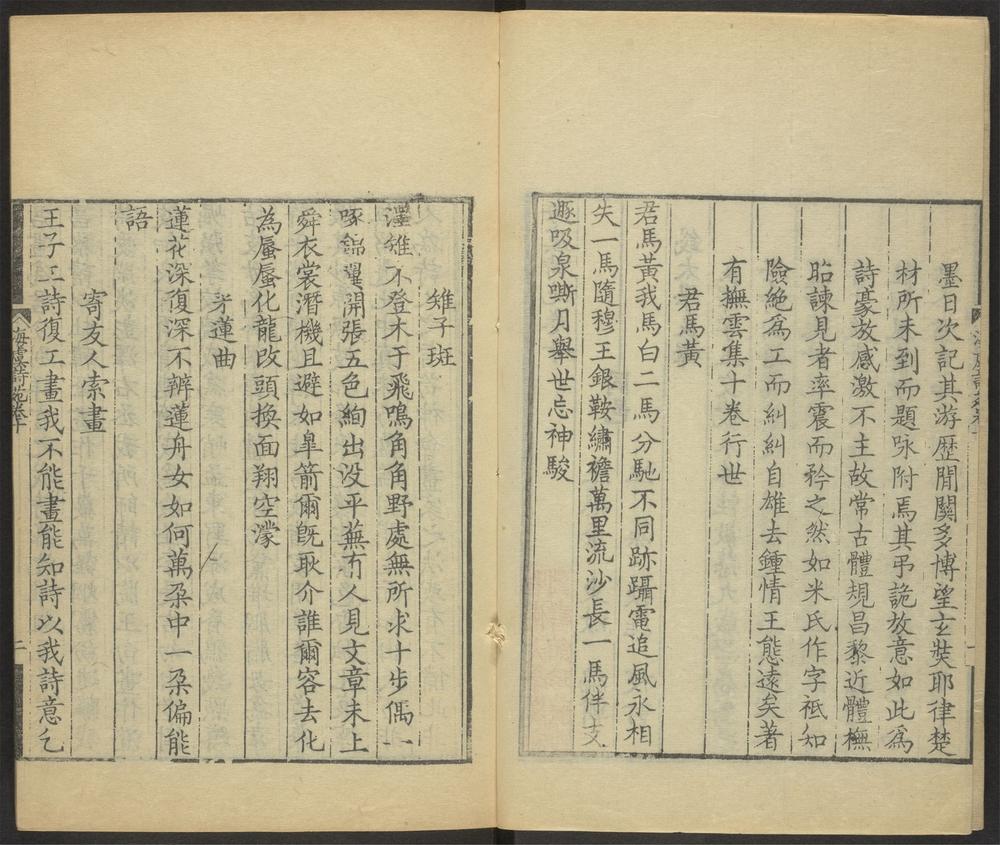 墨日次記其游歷間關多博望玄奘耶律楚
材所未到而題咏附焉其弔詭放意如此為
詩豪放感激不主故常古體規昌黎近體橅
昭諫見者率震而矜之然如米氏作字祗知
險絶爲工而糾糾自雄去鍾情王態遠矣著
有撫雲集十卷行世
君馬黃
君馬黃我馬白二馬分馳不同跡躡電追風永相
失一馬隨穆王銀鞍繡襜萬里流沙長一馬伴支
遯吸泉嘶月舉世忘神駿
雉子班
澤雉不登木于飛鳴角角野處無所求十步偶一
啄錦翼開張五色絢出没平蕪有人見文章未上
舜衣裳潛機且避如臯箭爾旣耿介誰爾容去化
為蜃蜃化龍改頭換面翔空濛
蓮曲
蓮花深復深不辨蓮舟女如何萬朶中一朶偏能
語
寄友人索畫
王子工詩復工畫我不能畫能知詩以我詩意乞
海虞詩苑卷十
二